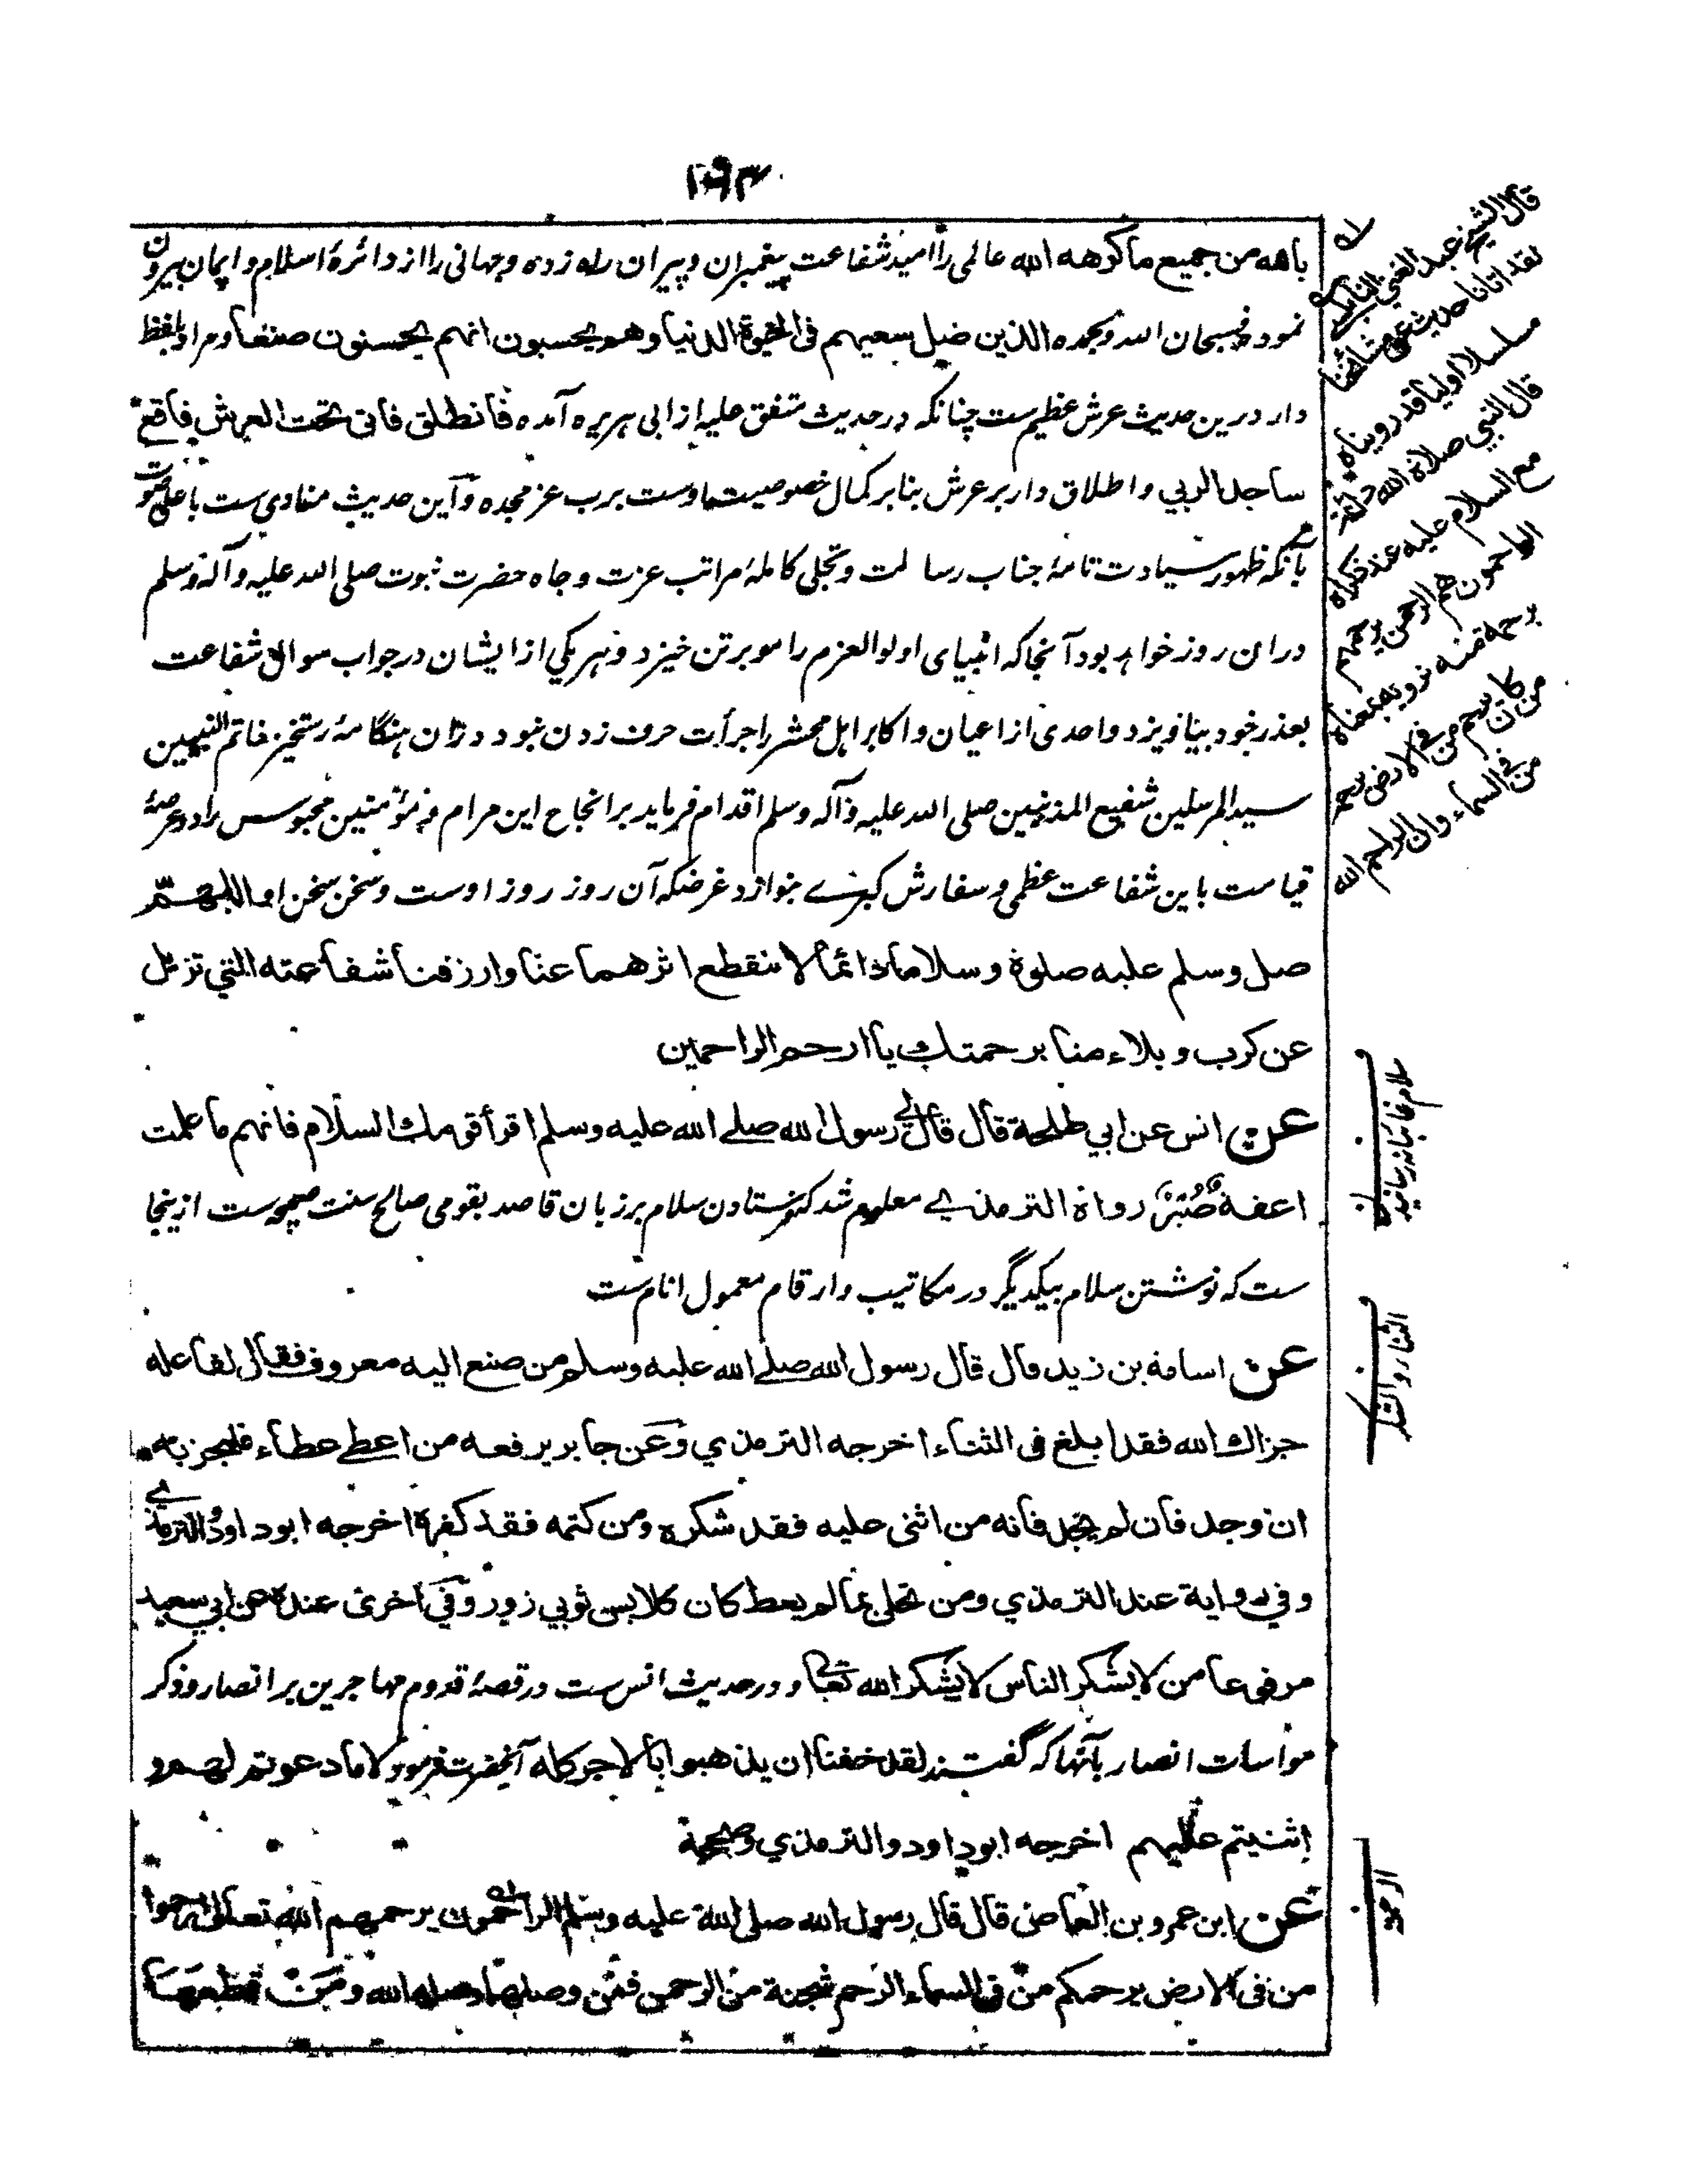 ۱۹۳
بالله من جميع ما كرهه الله عالمی را امید شفاعت پیغمبران و پیران راه زده و جهانی را از دائرهٔ اسلام و ایمان بیرون
نموده فسبحان الله وبحمده الذين ضل سعيهم فى الحيوة الدنيا وهم يحسبون انهم يحسنون صنعا و مراد بلفظ
دار درین حدیث عرش عظیم ست چنانکه در حدیث متفق علیه از ابی هریره آمده فانطلق فاتى تحت العرش فاقع
ساجدا لربي و اطلاق دار بر عرش بنابر کمال خصوصیت اوست برب عز مجده و این حدیث منادی ست با علی صوت
بآنکه ظهور سیادت تامهٔ جناب رسالت و تجلی کاملهٔ مراتب عزت و جاه حضرت نبوت صلی الله علیه وآله وسلم
دران روز خواهد بود آنجا که انبیای اولوالعزم را مو بر تن خیزد و هر یکی از ایشان در جواب سوال شفاعت
بعذر خود بیاویزد و احدی از اعیان و اکابر اهل محشر را جرأت حرف زدن نبود دران هنگامهٔ رستخیز خاتم النبیین
سید المرسلین شفیع المذنبین صلی الله علیه وآله وسلم اقدام فرماید بر انجاح این مرام و مؤمنین محبوس را در عرصهٔ
قیامت باین شفاعت عظمی و سفارش کبرے بنوازد غرضکه آن روز روز اوست و سخن سخن او اللهم
صل وسلم عليه صلوة وسلاما دائما لا ينقطع اثرهما عنا وارزقنا شفاعته التي تزيل
عن كرب و بلاء منا برحمتك يا ارحم الراحمين
عن انس عن ابي طلحة قال قال لي رسول الله صلے الله عليه وسلم اقرأ قومك السلام فانهم ما علمت
اعفة صُبُرٌ رواه الترمذي معلوم شد که فرستادن سلام بر زبان قاصد بقومی صالح سنت صحیحه ست ازینجا
ست که نوشتن سلام بیکدیگر در مکاتیب وارقام معمول انام ست
عن اسامة بن زيد قال قال رسول الله صلے الله عليه وسلم من صنع اليه معروف فقال لفاعله
جزاك الله فقد ابلغ فى الثناء اخرجه الترمذي وعن جابر يرفعه من اعطے عطاء فليجز به
ان وجد فان لم يجد فانه من اثنى عليه فقد شكره ومن كتمه فقد كفره اخرجه ابو داود والترمذي
وفي رواية عند الترمذي ومن تحلى بما لم يعط كان كلابس ثوبي زور وفي اخرى عنده عن ابي سعيد
مرفوعا من لا يشكر الناس لا يشكر الله تعالى و در حدیث انس ست در قصهٔ قدوم مهاجرین بر انصار و ذکر
مواسات انصار بآنها که گفتند لقد خفنا ان يذهبوا بالاجر كله آنحضرت فرمود لا ما دعوتم لهم و
اثنيتم عليهم اخرجه ابو داود والترمذي وصححه
عن ابن عمرو بن العاص قال قال رسول الله صلى الله عليه وسلم الراحمون يرحمهم الله تعالى ارحموا
من فى الارض يرحمكم من فى السماء الرحم شجنة من الرحمن فمن وصلها وصله الله ومن قطعها
قال الشيخ عبد الغني النابلسي
لقد اتانا حديث عن مشائخنا
مسلسلا اوليا قد رويناه
قال النبي صلاة الله خالقنا
مع السلام عليه عند ذكراه
الراحمون هم الرحمن يرحمهم
برحمة منه نرويه بمعناه
من كان يرحم من في الارض يرحمه
من في السماء وان الراحم الله
سلام غائبانه رسانیدن
الثناء والشكر
الرحمة